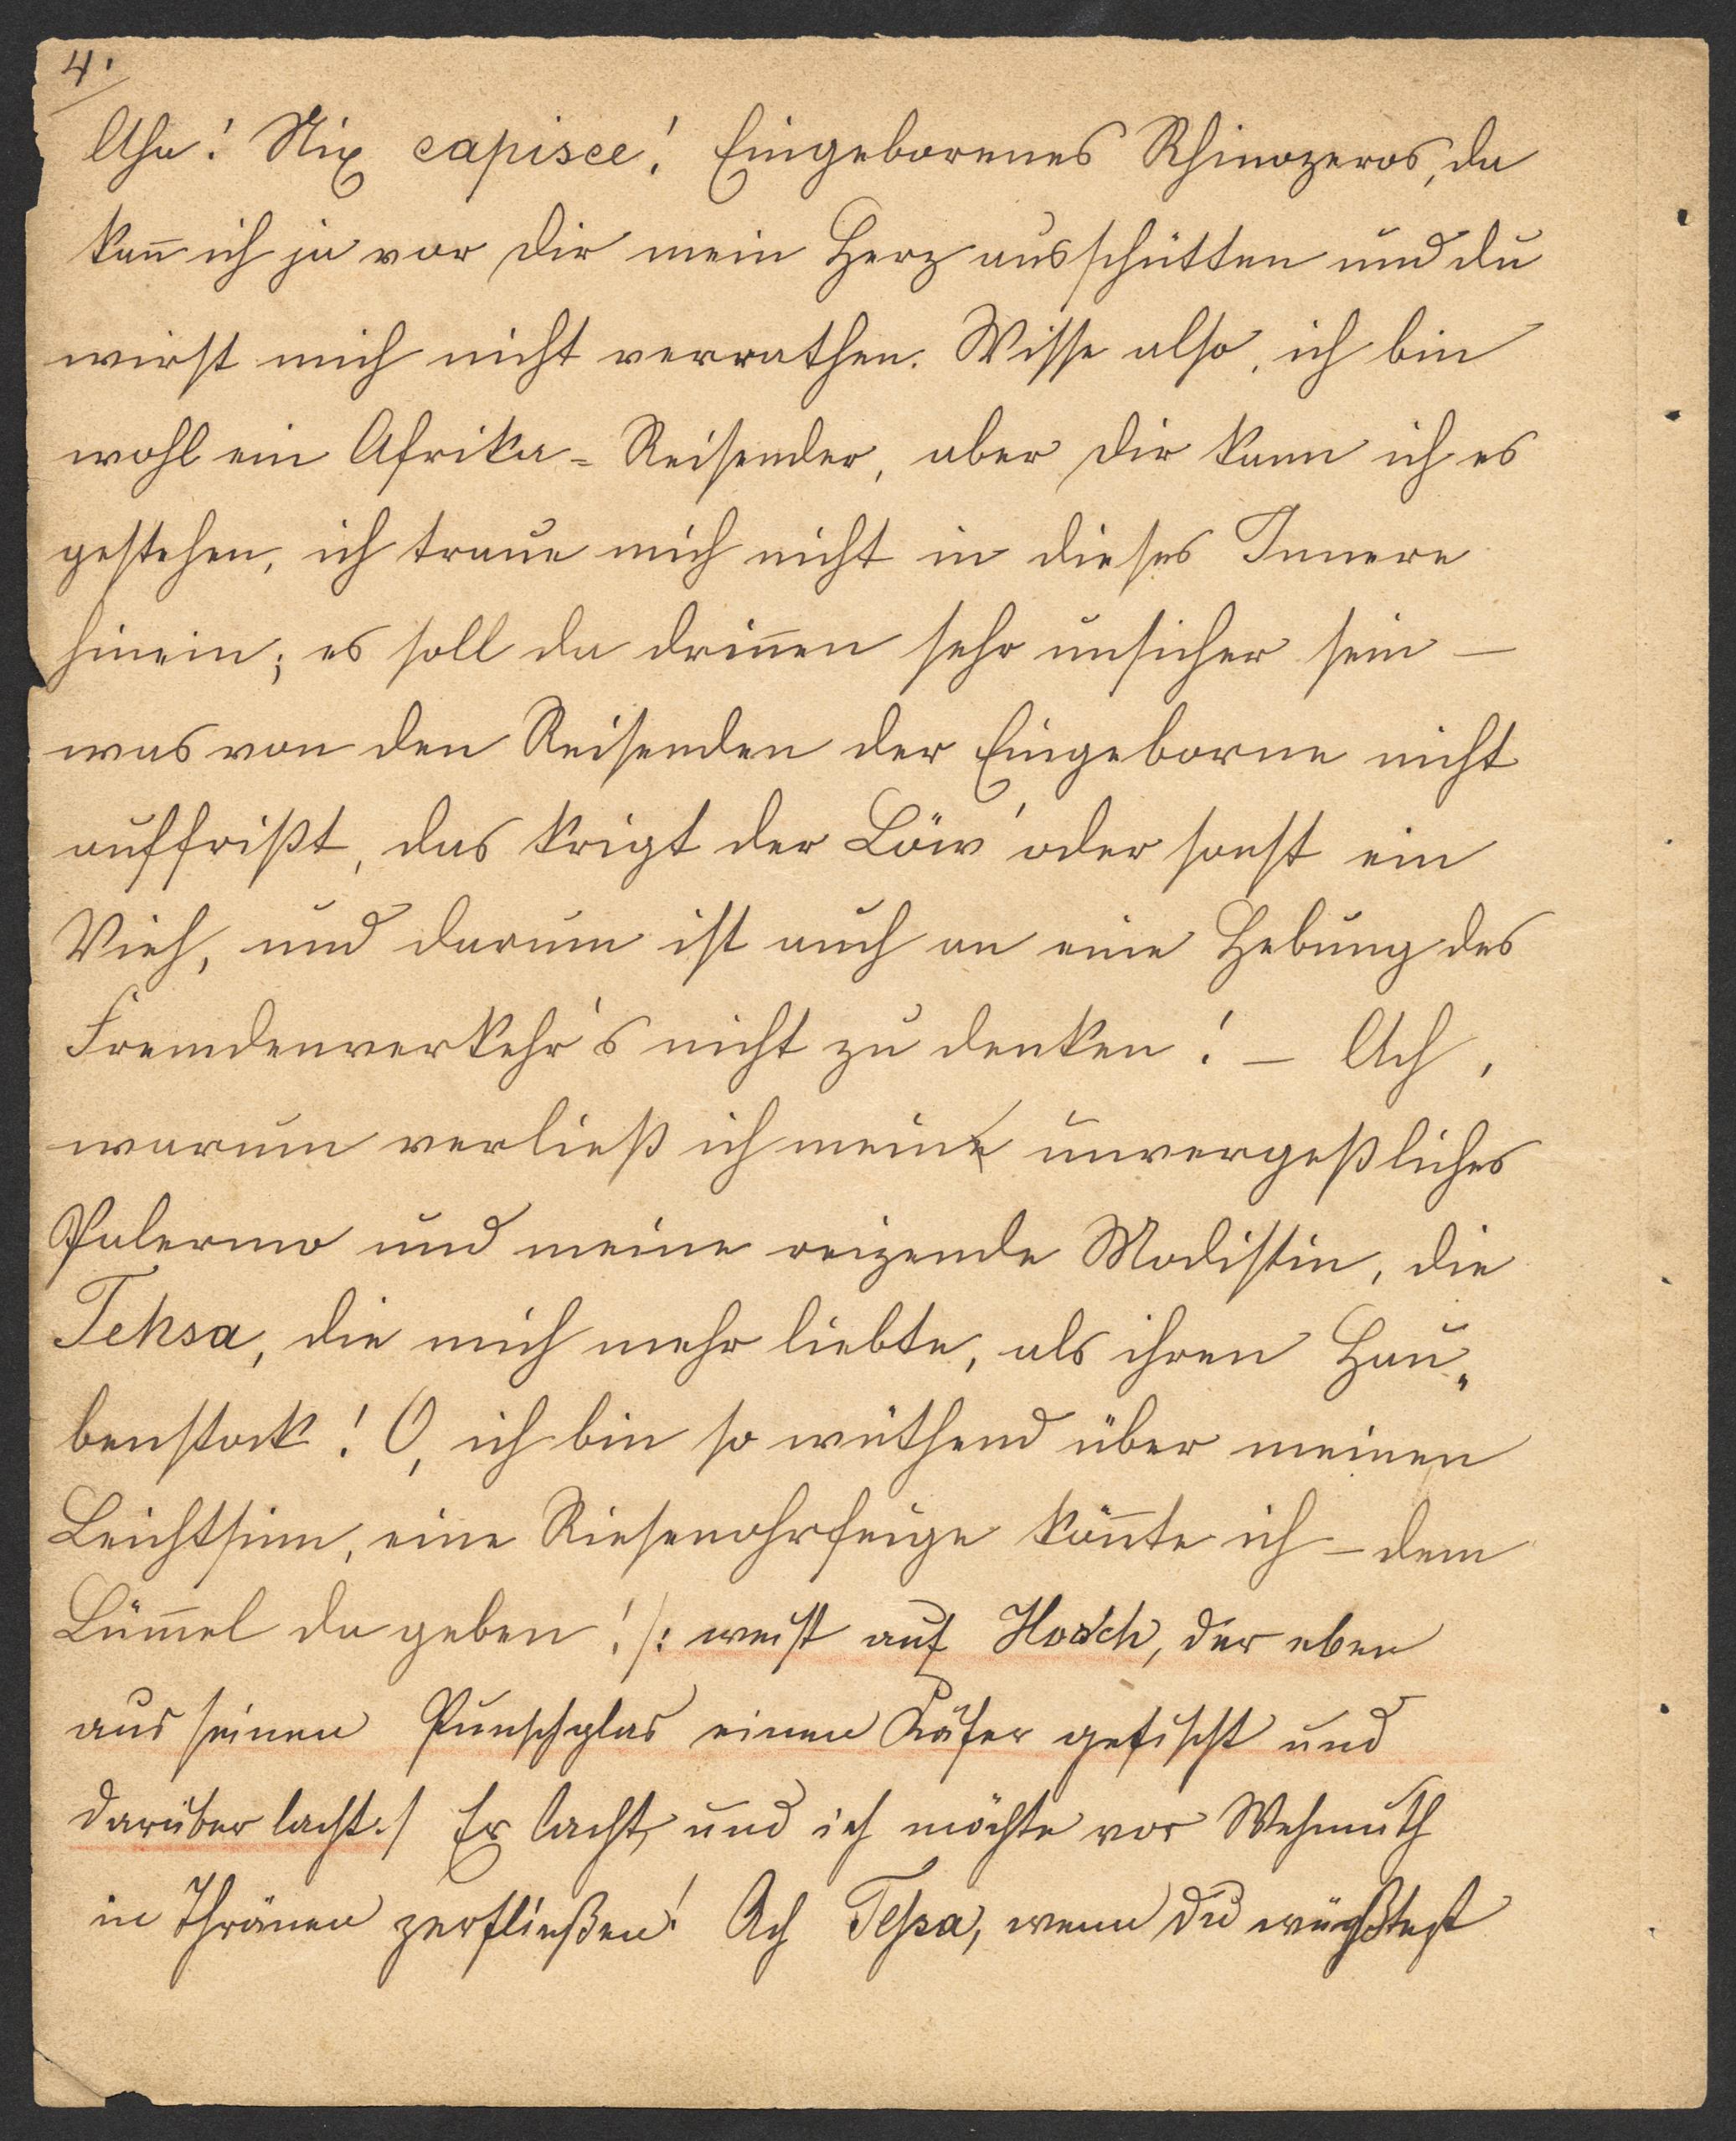 4.
Aha! Nix capisce! Eingeborenes Rhinozeros, da
kan̄ ich ja vor dir mein Herz ausschütten und du
wirst mich nicht verrathen. Wisse also, ich bin
wohl ein Afrika-Reisender, aber dir kann ich es
gestehen, ich traue mich nicht in dieses Innere
hinein; es soll da drin̄en sehr unsicher sein –
was von den Reisenden der Eingeborne nicht
auffrißt, das krigt der Löw' oder sonst ein
Vieh, und darum ist auch an eine Hebung des
Fremdenverkehr's nicht zu denken! – Ach,
warum verließ ich mein unvergeßliches
Palermo und meine reizende Modistin, die
Tehsa, die mich mehr liebte, als ihren Hau„
benstock! O, ich bin so wüthend über meinen
Leichtsinn, eine Riesenohrfeige kön̄te ich – dem
Lüm̄el da geben! /: weist auf Hosch, der eben
aus seinen Punschglas einen Käfer gefischt und
darüber lacht :/ Er lacht, und ich möchte vor Wehmuth
in Thränen zerfließen! Ach Tehsa, wenn du wüßtest